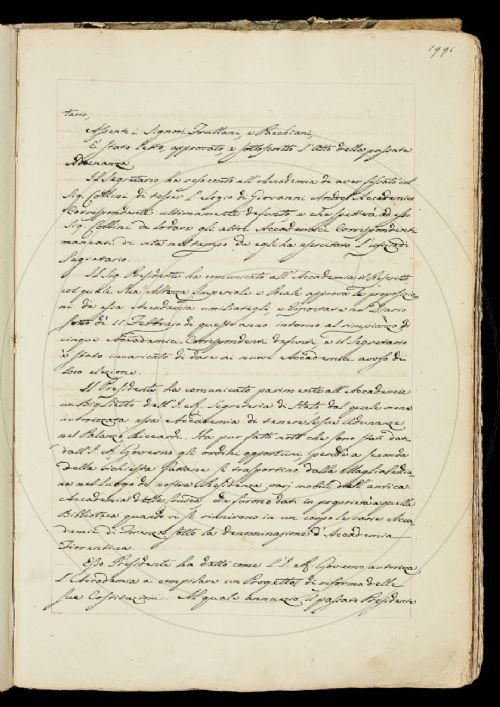 199
tario,
Assenti i Signori Fruttani, e Pacchiani,
È stato letto, approvato e sottoscritto l'Atto della passata
Adunanza
Il Segretario ha referito all'Accademia di aver fissato col
Sig. Collini di tesser l'Elogio di Giovanni Andres Accademico
Corrispondente ultimamente defunto e che spetterà ad esso
Sig. Collini di lodare gli altri Accademici Corrispondenti
mancati di vita nel tempo che egli ha esercitato l'ufizio di
Segretario.
Il Sig. Presidente ha comunicato all'Accademia il Rescritto
col quale Sua Altezza Imperiale e Reale approva le proposizio
ni di essa Accademia umiliategli e
sotto dì 11 Febbrajo di quest'anno intorno al rimpiazzo di
cinque Accademici Corrispondenti defunti, e il Segretario
è stato incaricato di dare ai nuovi Accademici avviso di
loro elezione.
Il Presidente ha comunicato parimente all'Accademia
un Biglietto dell'I. R. Segreteria di Stato dal quale viene
autorizzata essa Accademia di tenere le sue Adunanze
nel Palazzo Riccardi. Ha pur fatto noto che sono stati dati
dall'I. R. Governo gli ordini opportuni perchè a seconda
della richiesta fattane si trasportino dalla Magliabechia
na nel luogo di nostra Residenza varj mobili dell'antica
Accademia della Crusca che furono dati in proprietà a quella
Biblioteca quando si riunirono in un corpo le varie Acca
demie di Firenze sotto la denominazione d'Accademia
Fiorentina.
Esso Presidente ha detto come l'I. R. Governo autorizza
l'Accademia a compilare un Progetto di riforma delle
sue Costituzioni. Al quale annunzio il passato Presidente